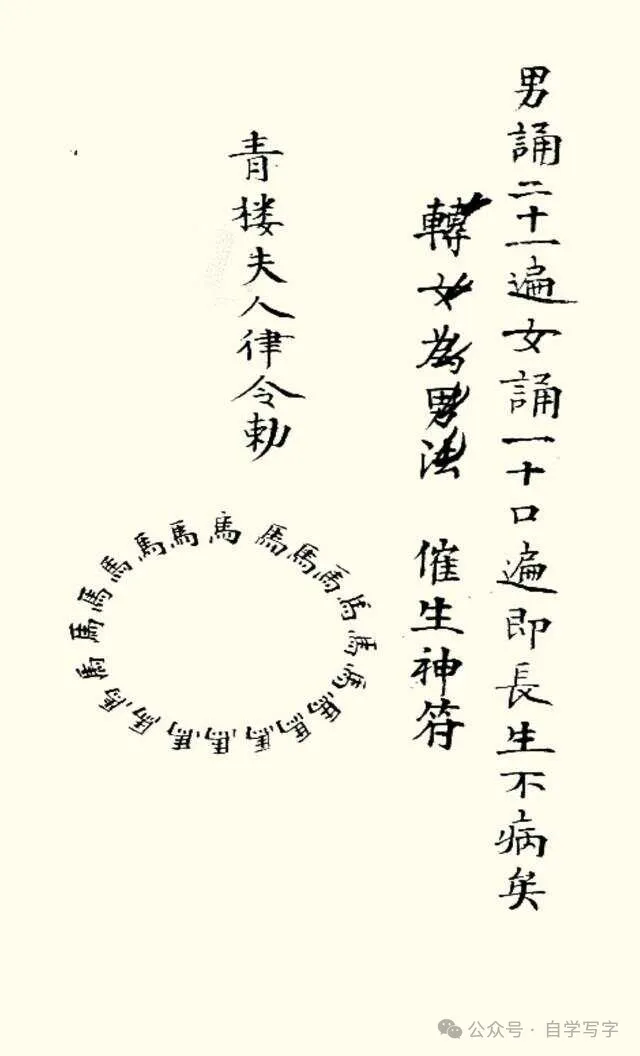 男誦二十一遍女誦一十口遍即長生不病矣
轉女為男法 催生神符
青楼夫人律令勅
馬馬馬馬馬馬馬馬馬馬馬馬馬馬馬馬馬馬馬馬
公众号·自学写字